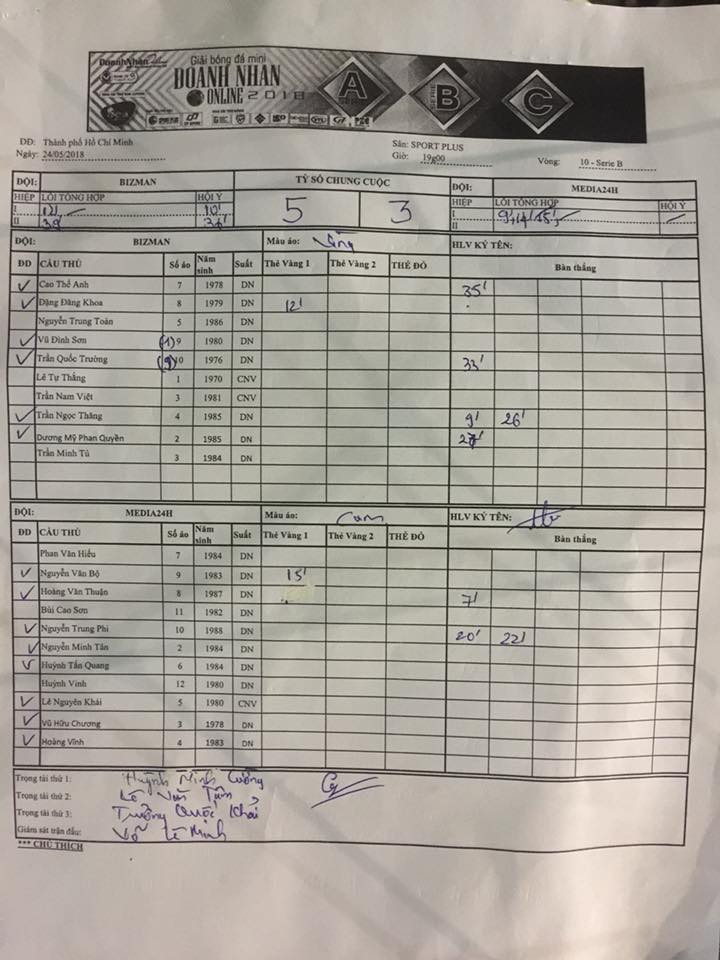 DoanhNhân
Giải bóng đá mini
DOANH NHÂN
ONLINE 2018
A
B
C
DĐ: Thành phố Hồ Chí Minh
Sân: SPORT PLUS
Ngày: 24/05/2018
Giờ: 19g00
Vòng: 10 - Serie B
ĐỘI: BIZMAN
TỶ SỐ CHUNG CUỘC
ĐỘI: MEDIA24H
HIỆP LỖI TỔNG HỢP HỘI Ý
5 3
HIỆP LỖI TỔNG HỢP HỘI Ý
I 12' 10'
I 9', 14', 15'
II 39' 34'
II
ĐỘI: BIZMAN Màu áo: HLV KÝ TÊN:
ĐD CẦU THỦ Số áo Năm sinh Suất Thẻ Vàng 1 Thẻ Vàng 2 THẺ ĐỎ Bàn thắng
Cao Thế Anh 7 1978 DN 35'
Đặng Đăng Khoa 8 1979 DN 12'
Nguyễn Trung Toàn 5 1986 DN
Vũ Đình Sơn (1) 9 1980 DN
Trần Quốc Trường (9) 10 1976 DN 33'
Lê Tự Thắng 1 1970 CNV
Trần Nam Việt 3 1981 CNV
Trần Ngọc Thăng 4 1985 DN 9' 26'
Dương Mỹ Phan Quyền 2 1985 DN
Trần Minh Tú 3 1984 DN
ĐỘI: MEDIA24H Màu áo: Cam HLV KÝ TÊN:
ĐD CẦU THỦ Số áo Năm sinh Suất Thẻ Vàng 1 Thẻ Vàng 2 THẺ ĐỎ Bàn thắng
Phan Văn Hiếu 7 1984 DN
Nguyễn Văn Bộ 9 1983 DN 15'
Hoàng Văn Thuận 8 1987 DN 7'
Bùi Cao Sơn 11 1982 DN
Nguyễn Trung Phi 10 1988 DN 20' 22'
Nguyễn Minh Tân 2 1984 DN
Huỳnh Tấn Quang 6 1984 DN
Huỳnh Vinh 12 1980 DN
Lê Nguyên Khải 5 1980 CNV
Vũ Hữu Chương 3 1978 DN
Hoàng Vĩnh 4 1983 DN
Trọng tài thứ 1: Huỳnh Minh Cường
Trọng tài thứ 2: Lê Văn Tâm
Trọng tài thứ 3: Trường Quốc Khải
Giám sát trận đấu: Võ Lê Minh
*** CHÚ THÍCH